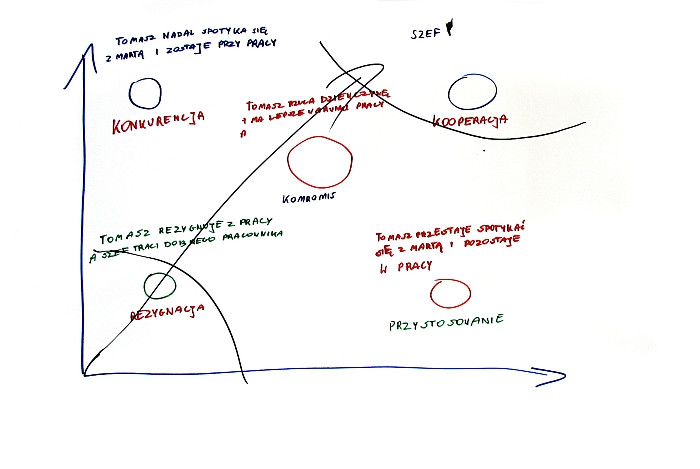 TOMASZ NADAL SPOTYKA SIĘ
Z MARTĄ I ZOSTAJE PRZY PRACY
SZEF
KONKURENCJA
TOMASZ RZUCA DZIEWCZYNĘ
I MA LEPSZE WARUNKI PRACY
A
KOOPERACJA
KOMROMIS
TOMASZ REZYGNUJE Z PRACY
A SZEF TRACI DOBREGO PRACOWNIKA
REZYGNACJA
TOMASZ PRZESTAJE SPOTYKAĆ
SIĘ Z MARTĄ I POZOSTAJE
W PRACY
PRZYSTOSOVANIE